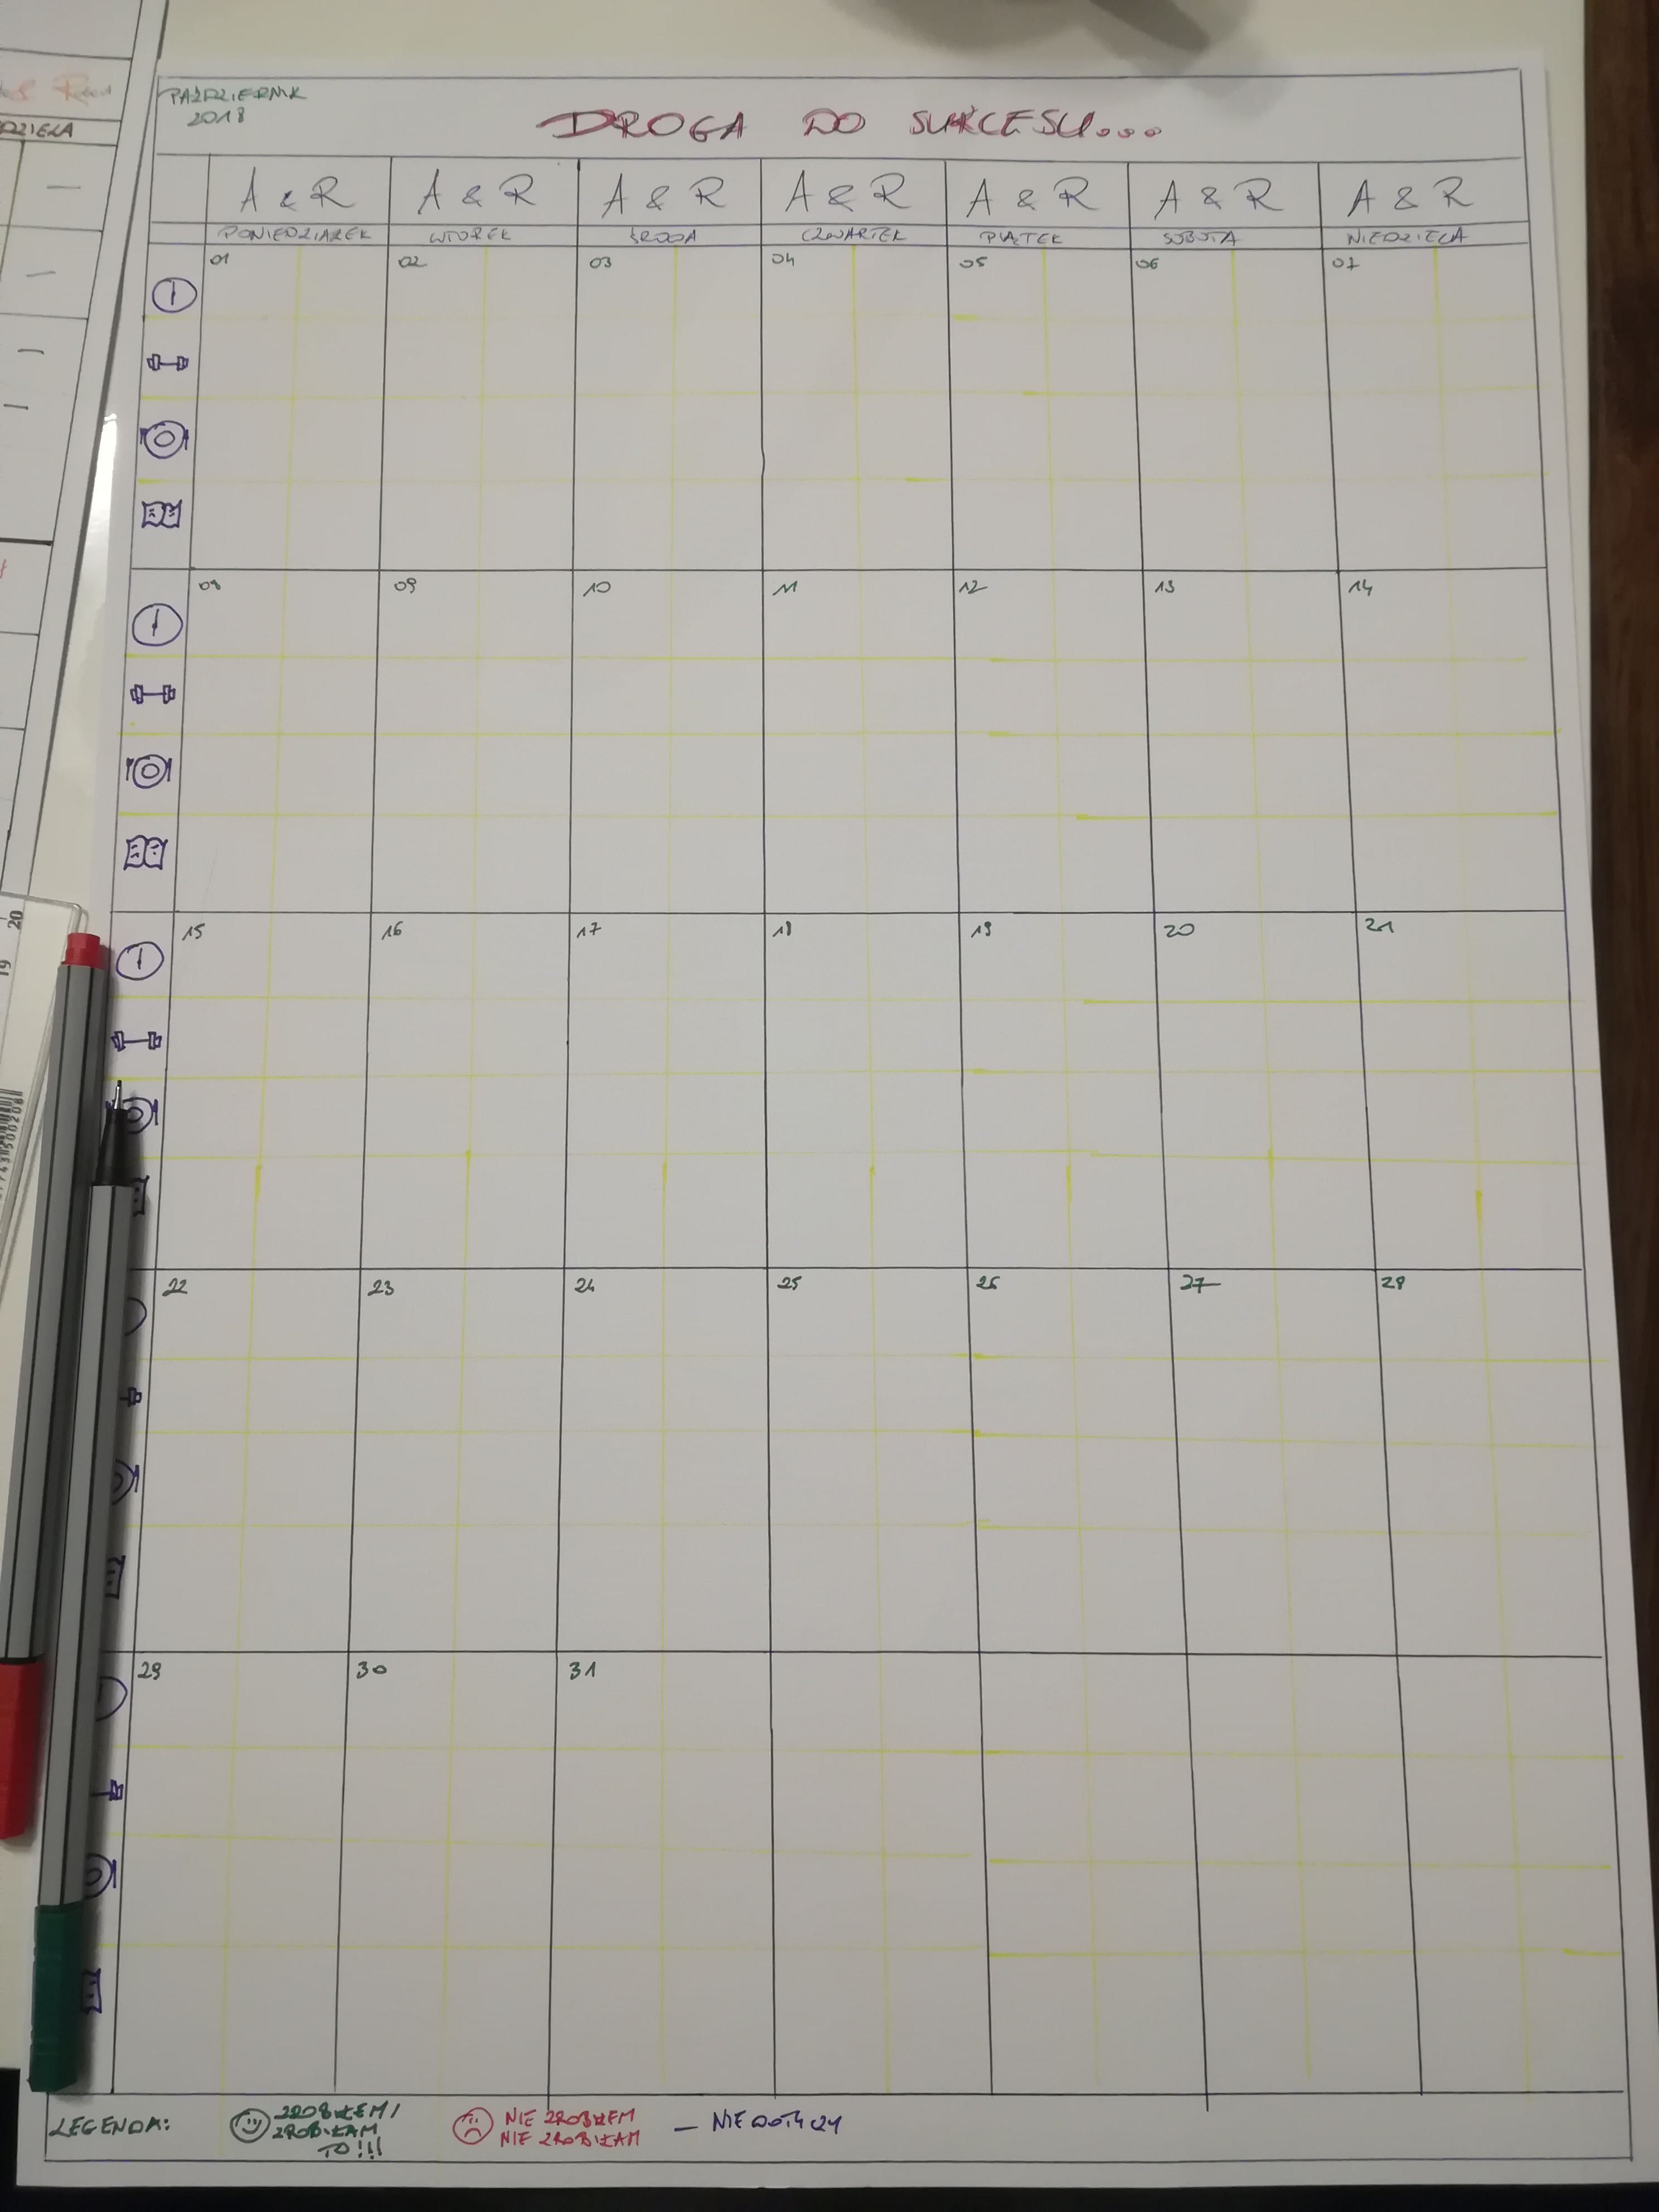 PAŹDZIERNIK
2018
DROGA DO SUKCESU...
A & R A & R A & R A & R A & R A & R A & R
PONIEDZIAŁEK WTOREK ŚRODA CZWARTEK PIĄTEK SOBOTA NIEDZIELA
01 02 03 04 05 06 07
08 09 10 11 12 13 14
15 16 17 18 19 20 21
22 23 24 25 26 27 28
29 30 31
LEGENDA:
ZROBIŁEM/
ZROBIŁAM
TO!!!
NIE ZROBIŁEM
NIE ZROBIŁAM
— NIE DOTYCZY
20
19